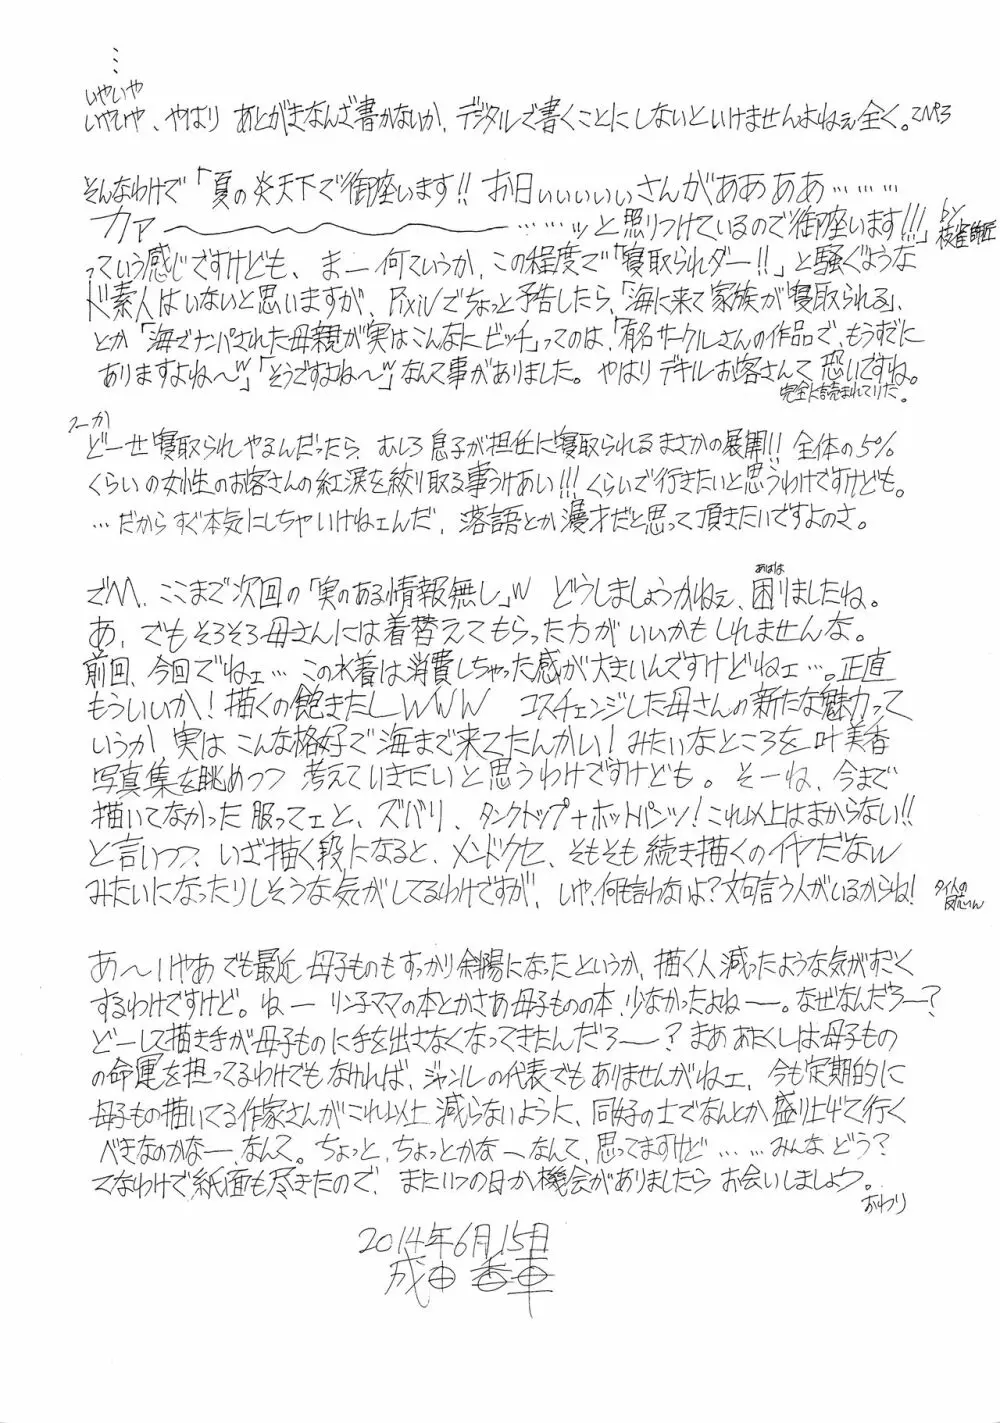 …
いやいや
いやいや、やはり あとがきなんざ書かないか、デジタルで書くことにしないといけませんよねぇ全く。2P3
そんなわけで「夏の炎天下で御座います!! お日ぃぃぃぃぃさんがああああ………
カァーーーーー……ッと照りつけているので御座います!!!」by 枝雀師匠
っていう感じですけども、まー何ていうか、この程度で「寝取られダー!!」と騒ぐような
ド素人はいないと思いますが、Pixivでちょっと予告したら、「海に来て家族が寝取られる」、
とか「海でナンパされた母親が実はこんなにビッチ」ってのは、「有名サークルさんの作品で、もうすでに
ありますよね〜w」「そうですよね〜w」なんて事がありました。やはりデキルお客さんて恐いですね。
完全に読まれてりだ。
つーか
どーせ寝取られやるんだったら、むしろ息子が担任に寝取られるまさかの展開!! 全体の5%
くらいの女性のお客さんの紅涙を絞り取る事うけあい!!! くらいで行きたいと思うわけですけども。
…だからすぐ本気にしちゃいけねェんだ、落語とか漫才だと思って頂きたいですよのさ。
で八、ここまで次回の「実のある情報無し」w どうしましょうかねぇ、困りましたね。
あはは
あ、でもそろそろ母さんには着替えてもらった方がいいかもしれませんな。
前回、今回でねェ…この水着は消費しちゃった感が大きいんですけどねェ…。正直
もういいか!描くの飽きたしwww コスチェンジした母さんの新たな魅力って
いうか 実は こんな格好で海まで来てたんかい!みたいなところを 叶美香
写真集を眺めつつ 考えていきたいと思うわけですけども。そーね、今まで
描いてなかった服ってェと、ズバリ、タンクトップ+ホットパンツ!これ以上はまからない!!
と言いつつ、いざ描く段になると、メンドクセ、そもそも続き描くのイヤだなw
みたいになったりしそうな気がしてるわけですが、いや、何も言わないよ?文句言う人がいるからね!
あ〜いやあでも最近 母子ものもすっかり斜陽になったというか、描く人減ったような気がすごく
するわけですけど。ねーリン子ママの本とかさあ母子ものの本、少なかったよねー。なぜなんだろー?
どーして描き手が母子ものに手を出さなくなってきたんだろー?まああたくしは母子もの
の命運を担ってるわけでもなければ、ジャンルの代表でもありませんがねェ、今も定期的に
母子もの描いてる作家さんがこれ以上減らないように、同好の士でなんとか盛り上げて行く
べきなのかなー、なんて。ちょっと、ちょっとかなーなんて、思ってますけど……みんなどう?
てなわけで紙面も尽きたので、またいつの日か機会がありましたら お会いしましょう。
おわり
2014年6月15日
成田香車